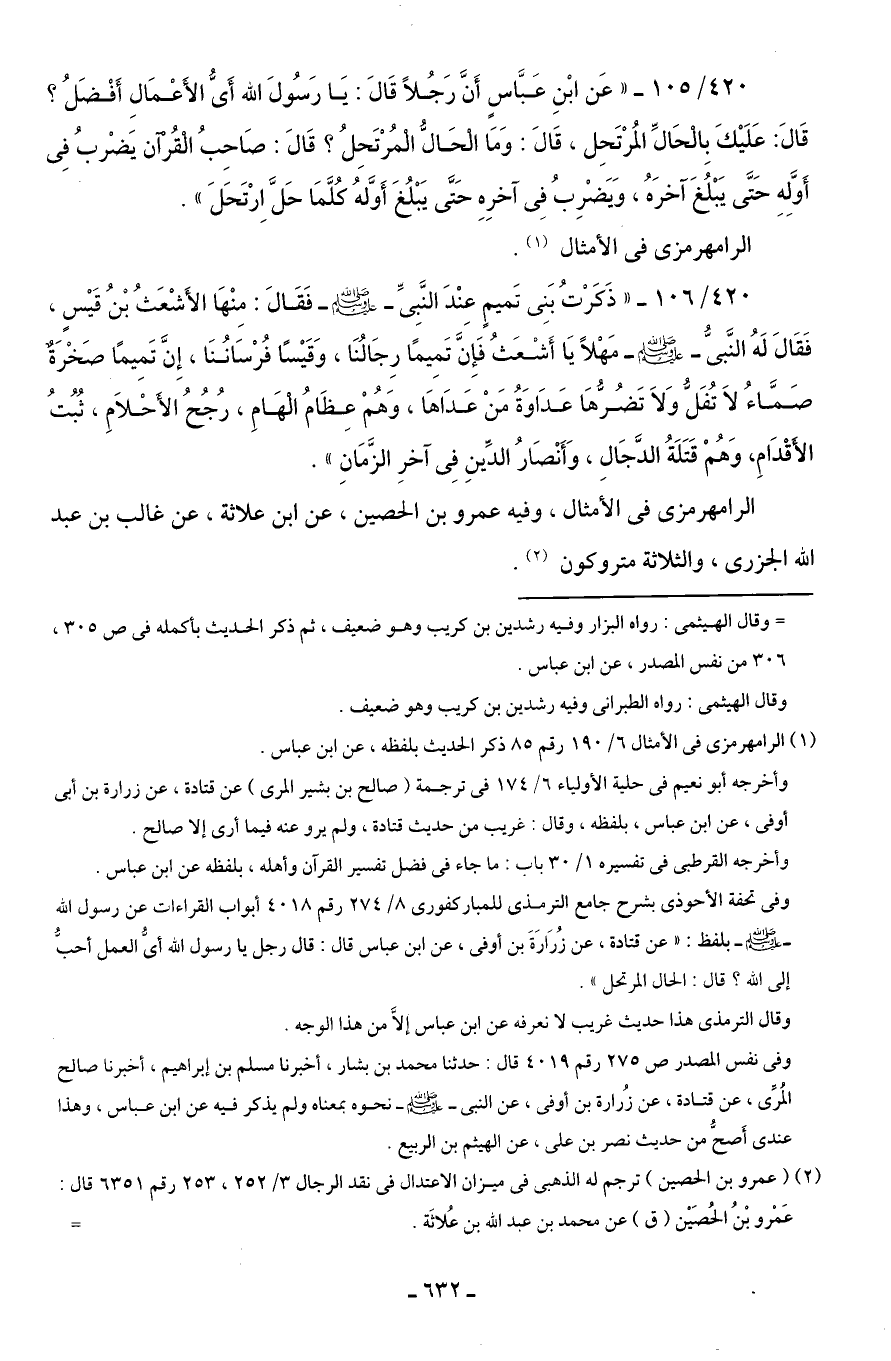 ٤٢٠/ ١٠٥ ـ « عَن ابْنِ عَبَّاسٍ أَنَّ رَجُلاً قَالَ : يَا رَسُولَ الله أَىُّ الأَعْمَالِ أَفْضَلُ ؟
قَالَ: عَلَيْكَ بِالْحَالِّ المُرْتَحِلِ ، قَالَ : وَمَا الْحَالُّ الْمُرْتَحِلُ ؟ قَالَ : صَاحِبُ الْقُرْآنِ يَضْرِبُ فِى
أَوَّلِهِ حَتَّى يَبْلُغَ آخِرَهُ ، وَيَضْرِبُ فِى آخِرِهِ حَتَّى يَبْلُغَ أَوَّلَهُ كُلَّمَا حَلَّ ارْتَحَلَ » .
الرامهرمزى فى الأمثال (١) .
٤٢٠/ ١٠٦ ـ « ذَكَرْتُ بَنِى تَمِيمٍ عِنْدَ النَّبِىِّ ـ ﷺ ـ فَقَالَ : مِنْهَا الأَشْعَثُ بْنُ قَيْسٍ ،
فَقَالَ لَهُ النَّبِىُّ ـ ﷺ ـ مَهْلاً يَا أَشْعَثُ فَإِنَّ تَمِيمًا رِجَالُنَا ، وَقَيْسًا فُرْسَانُنَا ، إِنَّ تَمِيمًا صَخْرَةٌ
صَمَّاءُ لاَ تُفَلُّ وَلاَ تَضُرُّهَا عَدَاوَةُ مَنْ عَدَاهَا ، وَهُمْ عِظَامُ الْهَامِ ، رِجُحُ الأَحْلاَمِ ، ثُبُتُ
الأَقْدَامِ، وَهُمْ قَتَلَةُ الدَّجَالِ ، وَأَنْصَارُ الدِّينِ فِى آخِرِ الزَّمَانِ » .
الرامهرمزى فى الأمثال ، وفيه عمرو بن الحصين ، عن ابن علاثة ، عن غالب بن عبد
الله الجزرى ، والثلاثة متروكون (٢) .
= وقال الهيثمى : رواه البزار وفيه رشدين بن كريب وهو ضعيف ، ثم ذكر الحديث بأكمله فى ص ٣٠٥ ،
٣٠٦ من نفس المصدر ، عن ابن عباس .
وقال الهيثمى : رواه الطبرانى وفيه رشدين بن كريب وهو ضعيف .
(١) الرامهرمزى فى الأمثال ٦/ ١٩٠ رقم ٨٥ ذكر الحديث بلفظه ، عن ابن عباس .
وأخرجه أبو نعيم فى حلية الأولياء ٦/ ١٧٤ فى ترجمة ( صالح بن بشير المرى ) عن قتادة ، عن زرارة بن أبى
أوفى ، عن ابن عباس ، بلفظه ، وقال : غريب من حديث قتادة ، ولم يرو عنه فيما أرى إلا صالح .
وأخرجه القرطبى فى تفسيره ١/ ٣٠ باب : ما جاء فى فضل تفسير القرآن وأهله ، بلفظه عن ابن عباس .
وفى تحفة الأحوذى بشرح جامع الترمذى للمباركفورى ٨/ ٢٧٤ رقم ٤٠١٨ أبواب القراءات عن رسول الله
ـ ﷺ ـ بلفظ : « عن قتادة ، عن زُرَارَةَ بن أوفى ، عن ابن عباس قال : قال رجل يا رسول الله أىُّ العمل أحبُّ
إلى الله ؟ قال : الحال المرتحل » .
وقال الترمذى هذا حديث غريب لا نعرفه عن ابن عباس إلاَّ من هذا الوجه .
وفى نفس المصدر ص ٢٧٥ رقم ٤٠١٩ قال : حدثنا محمد بن بشار ، أخبرنا مسلم بن إبراهيم ، أخبرنا صالح
المُرِّى ، عن قتادة ، عن زُرارة بن أوفى ، عن النبى ـ ﷺ ـ نحوه بمعناه ولم يذكر فيه عن ابن عباس ، وهذا
عندى أَصحُّ من حديث نصر بن على ، عن الهيثم بن الربيع .
(٢) ( عمرو بن الحصين ) ترجم له الذهبى فى ميزان الاعتدال فى نقد الرجال ٣/ ٢٥٢ ، ٢٥٣ رقم ٦٣٥١ قال :
عَمْرو بْنُ الحُصَيْن ( ق ) عن محمد بن عبد الله بن عُلاثَة . =
ـ ٦٣٢ ـ